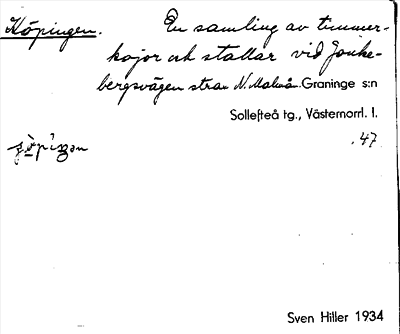 Köpingen. En samling av timmer-
kojor och stallar vid Jonke-
bergsvägen strax N. Malmå. Graninge s:n
Sollefteå tg., Västernorrl. l.
47
Sven Hiller 1934